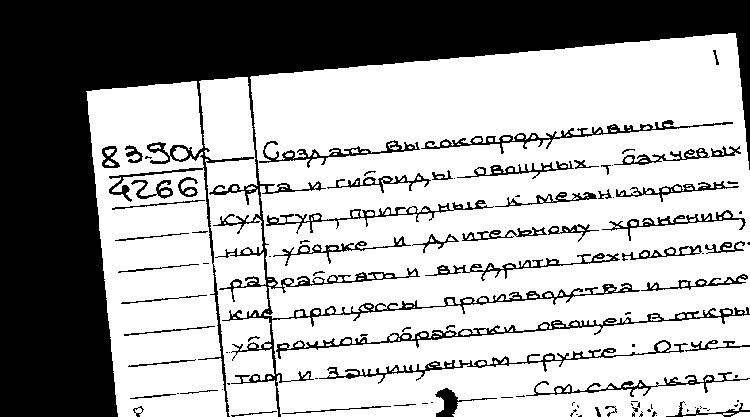 1
Создать высокопродуктивные
сорта и гибриды овощных, бахчевых
культур, пригодные к механизирован-
ной уборке и длительному хранению;
разработать и внедрить технологичес-
кие процессы производства и после
уборочной обработки овощей в откры
том и защищенном грунте: Отчет
См. след. карт.
83.90
4266